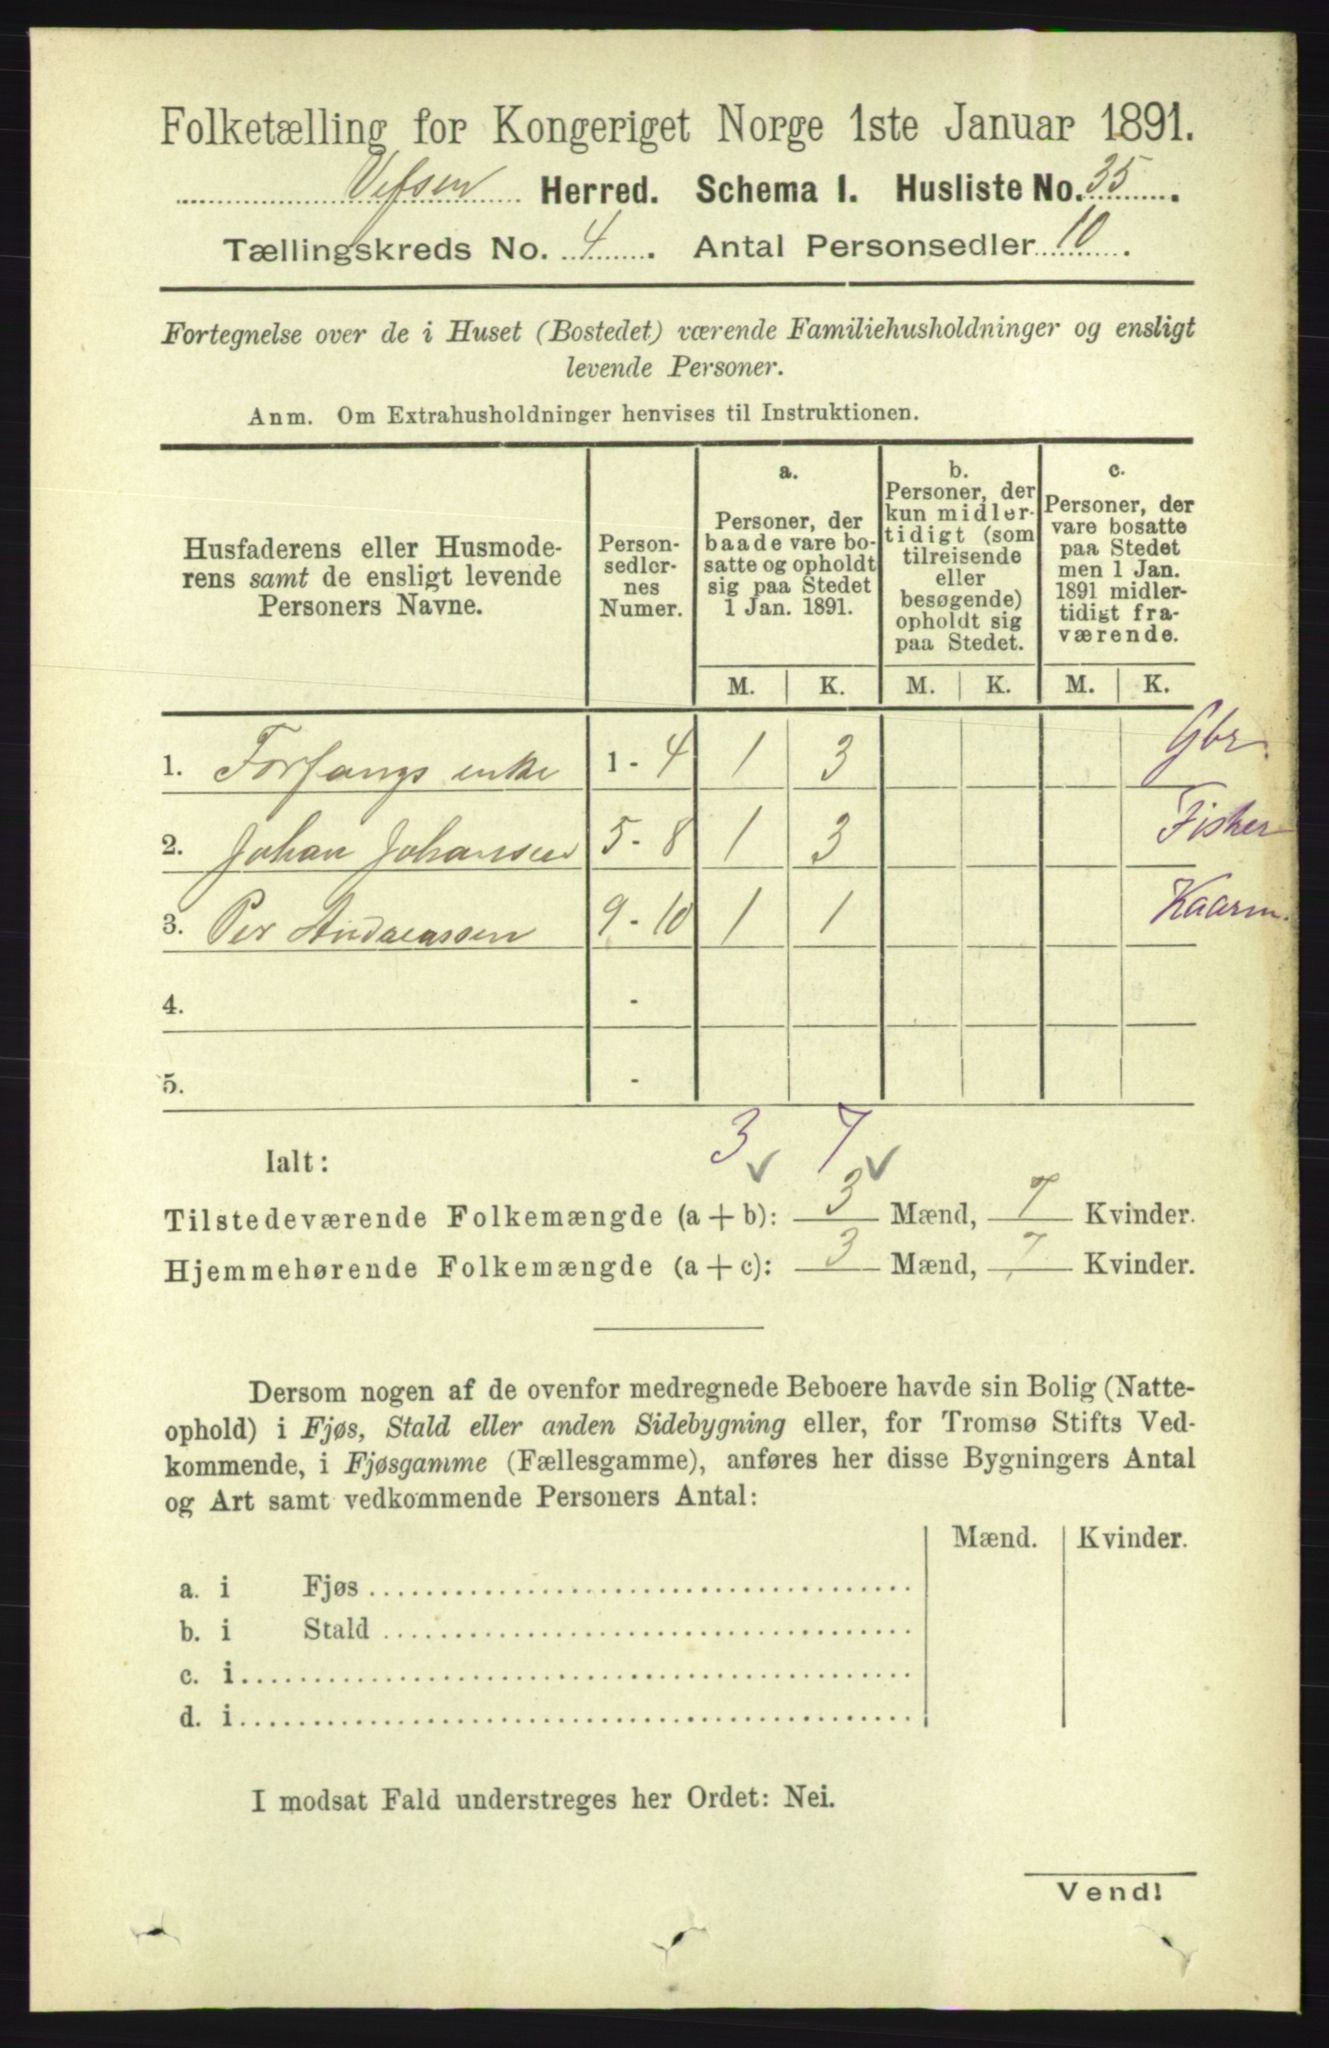 Folketælling for Kongeriget Norge 1ste Januar 1891.
Vefsen Herred. Schema 1. Husliste No. 35.
Tællingskreds No. 4. Antal Personsedler 10.
Fortegnelse over de i Huset (Bostedet) værende Familiehusholdninger og ensligt
levende Personer.
Anm. Om Extrahusholdninger henvises til Instruktionen.
Husfaderens eller Husmode-
rens samt de ensligt levende
Personers Navne.
Person-
sedler-
nes
Numer.
a.
Personer, der
baade vare bo-
satte og opholdt
sig paa Stedet
1 Jan. 1891.
b.
Personer, der
kun midler-
tidigt (som
tilreisende
eller
besøgende)
opholdt sig
paa Stedet.
c.
Personer, der
vare bosatte
paa Stedet
men 1 Jan.
1891 midler-
tidigt fra-
værende.
M. K. M. K. M. K.
1. Forfangs enke 1 - 4 1 3 Gbr.
2. Johan Johansen 5 - 8 1 3 Fisker
3. Per Andreassen 9 - 10 1 1 Kaarm.
4. -
5. -
3 7
Ialt:
Tilstedeværende Folkemængde (a + b): 3 Mænd, 7 Kvinder.
Hjemmehørende Folkemængde (a + c): 3 Mænd, 7 Kvinder.
Dersom nogen af de ovenfor medregnede Beboere havde sin Bolig (Natte-
ophold) i Fjøs, Stald eller anden Sidebygning eller, for Tromsø Stifts Ved-
kommende, i Fjøsgamme (Fællesgamme), anføres her disse Bygningers Antal
og Art samt vedkommende Personers Antal:
Mænd. Kvinder.
a. i Fjøs
b. i Stald
c. i
d. i
I modsat Fald understreges her Ordet: Nei.
Vend!